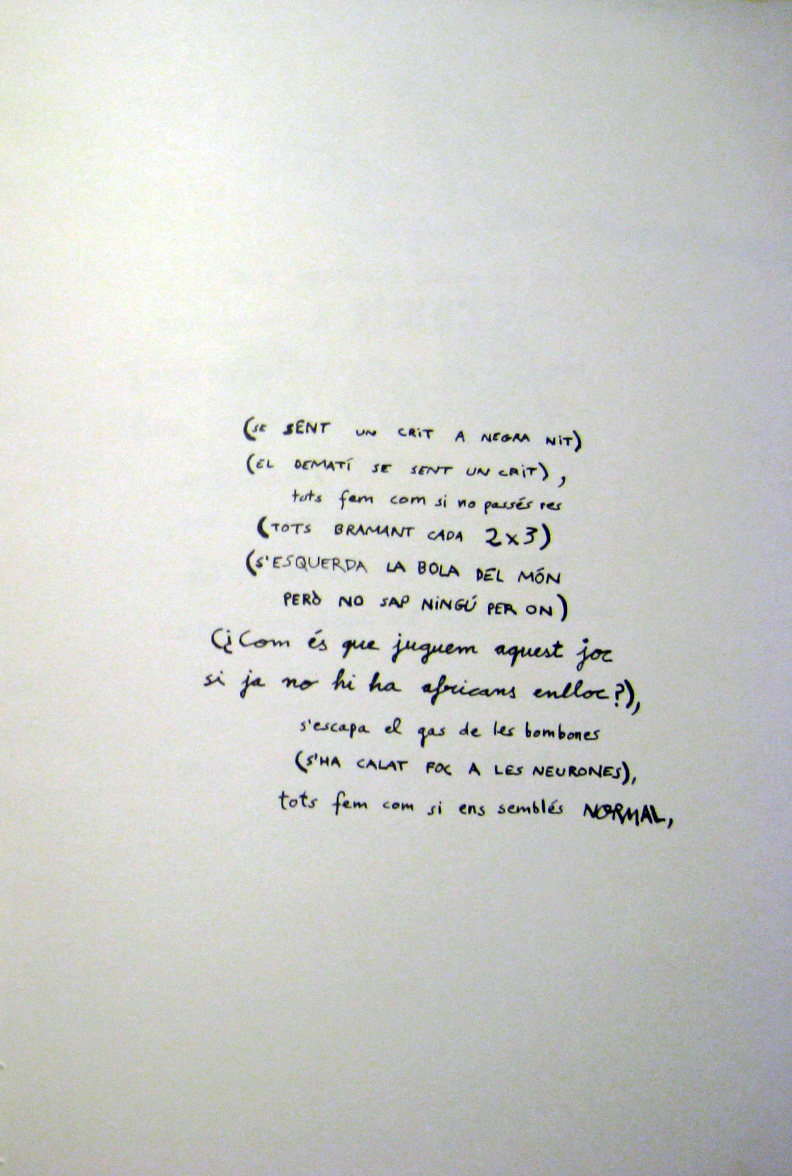 (SE SENT UN CRIT A NEGRA NIT)
(EL DEMATÍ SE SENT UN CRIT),
tots fem com si no passés res
(TOTS BRAMANT CADA 2x3)
(S'ESQUERDA LA BOLA DEL MÓN
PERÒ NO SAP NINGÚ PER ON)
(¿Com és que juguem aquest joc
si ja no hi ha africans enlloc?),
s'escapa el gas de les bombones
(S'HA CALAT FOC A LES NEURONES),
tots fem com si ens semblés NORMAL,